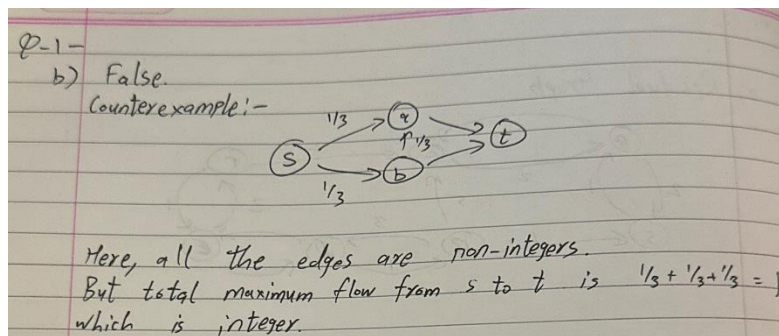 Q-1-
b) False.
Counterexample:-
1/3
a
↑ 1/3
S
t
b
1/3
Here, all the edges are non-integers.
But total maximum flow from s to t is 1/3 + 1/3 + 1/3 = 1
which is integer.